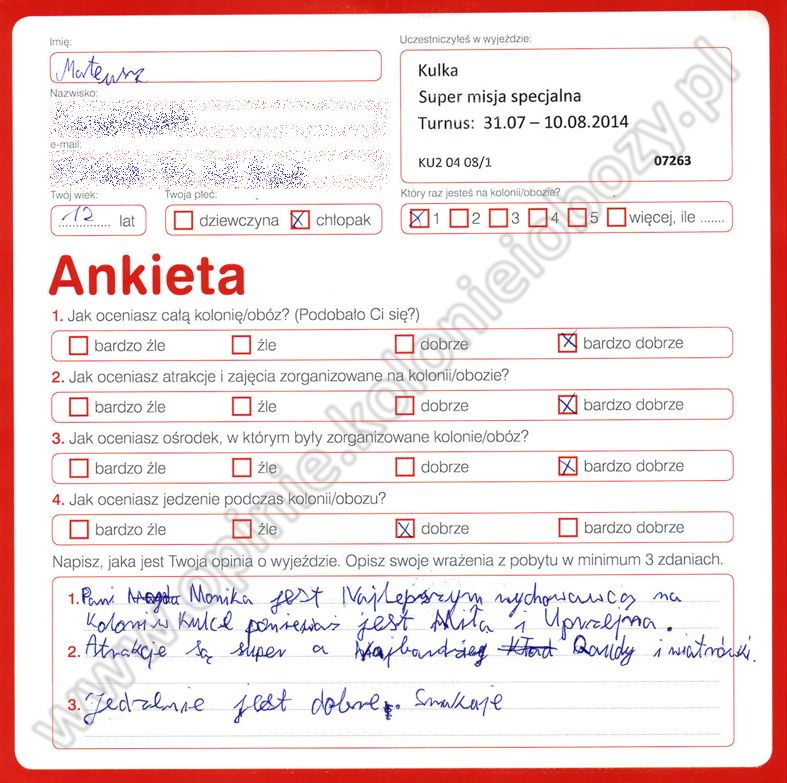 Imię:
Uczestniczyłeś w wyjeździe:
Mateusz
Kulka
Super misja specjalna
Turnus: 31.07 – 10.08.2014
KU2 04 08/1 07263
Nazwisko:
e-mail:
Twój wiek: Twoja płeć: Który raz jesteś na kolonii/obozie?
12 lat dziewczyna chłopak 1 2 3 4 5 więcej, ile .......
Ankieta
1. Jak oceniasz całą kolonię/obóz? (Podobało Ci się?)
bardzo źle źle dobrze bardzo dobrze
2. Jak oceniasz atrakcje i zajęcia zorganizowane na kolonii/obozie?
bardzo źle źle dobrze bardzo dobrze
3. Jak oceniasz ośrodek, w którym były zorganizowane kolonie/obóz?
bardzo źle źle dobrze bardzo dobrze
4. Jak oceniasz jedzenie podczas kolonii/obozu?
bardzo źle źle dobrze bardzo dobrze
Napisz, jaka jest Twoja opinia o wyjeździe. Opisz swoje wrażenia z pobytu w minimum 3 zdaniach.
1. Pani Magda Monika jest Najlepszym wychowawcą na
Koloni w Kulce ponieważ jest Miła i Uprzejma.
2. Atrakcje są super a Najbardziej i wiatrówki.
3. Jedzenie jest dobre. Smakuje
www.opinie.kolonieiobozy.pl